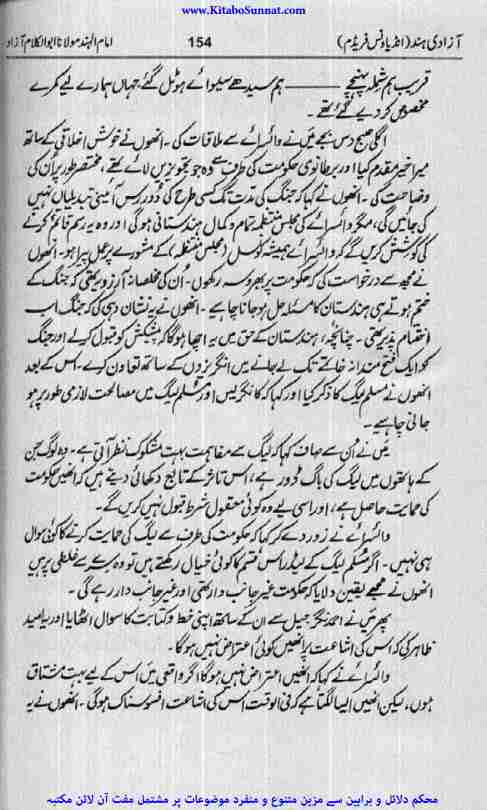 www.KitaboSunnat.com
آزادی ہند (انڈیا ونس فریڈم) 154 امام الہند مولانا ابوالکلام آزاد
قریب ہم شملہ پہنچے ——— ہم سیدھے سیوائے ہوٹل گئے، جہاں ہمارے لیے کمرے
مخصوص کر دیے گئے تھے۔
اگلی صبح دس بجے میں نے وائسرائے سے ملاقات کی۔ انھوں نے خوش اخلاقی کے ساتھ
میرا خیر مقدم کیا اور برطانوی حکومت کی طرف سے وہ جو تجویزیں لائے تھے، مختصر طور پر اُن کی
وضاحت کی۔ انھوں نے کہا کہ جنگ کی مدت تک کسی طرح کی دُور رس آئینی تبدیلیاں نہیں
کی جائیں گی، مگر وائسرائے کی مجلس منتظمہ تمام و کمال ہندستانی ہو گی اور وہ یہ رسم قائم کرنے
کی کوشش کریں گے کہ وائسرائے ہمیشہ کونسل (مجلس منتظمہ) کے مشورے پر عمل پیرا ہو۔ انھوں
نے مجھ سے درخواست کی کہ حکومت پر بھروسہ رکھوں۔ اُن کی مخلصانہ آرزو یہ تھی کہ جنگ کے
ختم ہوتے ہی ہندستان کا مسئلہ حل ہو جانا چاہیے۔ انھوں نے یہ نشان دہی کی کہ جنگ اب
اختتام پذیر تھی۔ چنانچہ، ہندستان کے حق میں یہ اچھا ہو گا کہ پیشکش کو قبول کر لے اور جنگ
کو ایک فتح مندانہ خاتمے تک لے جانے میں انگریزوں کے ساتھ تعاون کرے۔ اس کے بعد
انھوں نے مسلم لیگ کا ذکر کیا اور کہا کہ کانگریس اور مسلم لیگ میں مصالحت لازمی طور پر ہو
جانی چاہیے۔
میں نے اُن سے صاف کہا کہ لیگ سے مفاہمت بہت مشکوک نظر آتی ہے۔ وہ لوگ جن
کے ہاتھوں میں لیگ کی باگ ڈور ہے، اس تاثر کے تابع دکھائی دیتے ہیں کہ انھیں حکومت
کی حمایت حاصل ہے، اور اسی لیے وہ کوئی معقول شرط قبول نہیں کریں گے۔
وائسرائے نے زور دے کر کہا کہ حکومت کی طرف سے لیگ کی حمایت کرنے کا کوئی سوال
ہی نہیں۔ اگر مسلم لیگ کے لیڈر اس قسم کا کوئی خیال رکھتے ہیں تو وہ سرے سے غلطی پر ہیں
انھوں نے مجھے یقین دلایا کہ حکومت غیر جانب دار تھی اور غیر جانب دار رہے گی۔
پھر میں نے احمد نگر جیل سے ان کے ساتھ اپنی خط و کتابت کا سوال اٹھایا اور یہ امید
ظاہر کی کہ اس کی اشاعت پر انھیں کوئی اعتراض نہیں ہو گا۔
وائسرائے نے کہا کہ انھیں اعتراض نہیں ہو گا اگر واقعی میں اس کے لیے بہت مشتاق
ہوں، لیکن انھیں ایسا لگتا ہے کہ فی الوقت اس کی اشاعت افسوسناک ہو گی۔ انھوں نے یہ
محکم دلائل و براہین سے مزین متنوع و منفرد موضوعات پر مشتمل مفت آن لائن مکتبہ